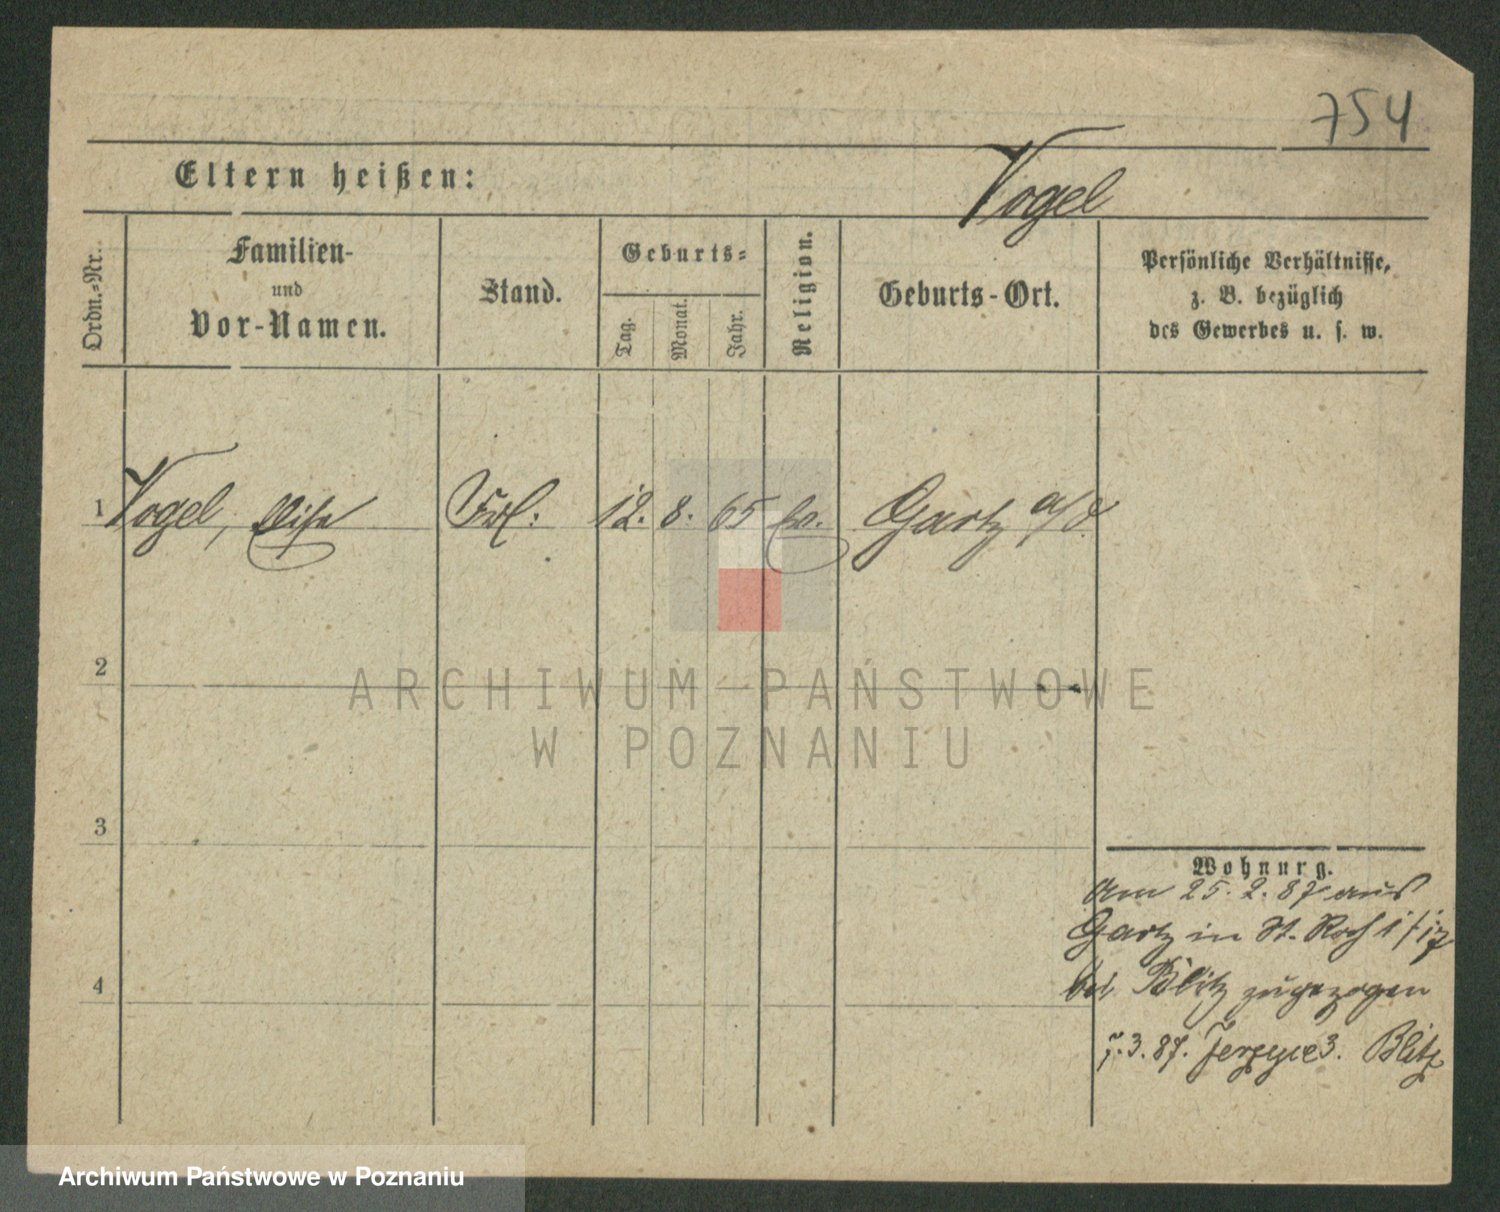 754
Eltern heißen:
Vogel
Ordn.-Nr.
Familien-
und
Vor-Namen.
Stand.
Geburts-
Tag.
Monat.
Jahr.
Religion.
Geburts-Ort.
Persönliche Verhältnisse,
z. B. bezüglich
des Gewerbes u. s. w.
1 Vogel, Elise Frl: 12. 8. 65 ev. Gartz a/O
2
3
4
Wohnung.
Am 25. 2. 87 aus
Gartz in St. Roch 1/17
bei Blitz zugezogen
7.3.87. Jerzyce 3. Blitz
ARCHIWUM PAŃSTWOWE
W POZNANIU
Archiwum Państwowe w Poznaniu